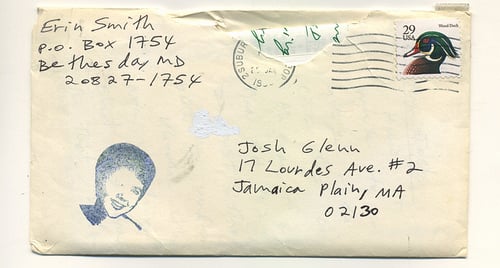 Erin Smith
P.O. Box 1754
Bethesday MD
20827-1754
SUBUR
29
USA
Wood Duck
Josh Glenn
17 Lourdes Ave. #2
Jamaica Plain, MA
02130